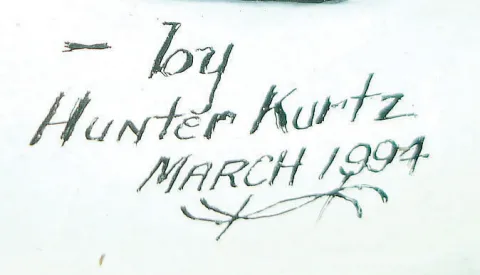 - by
Hunter Kurtz
MARCH 1994